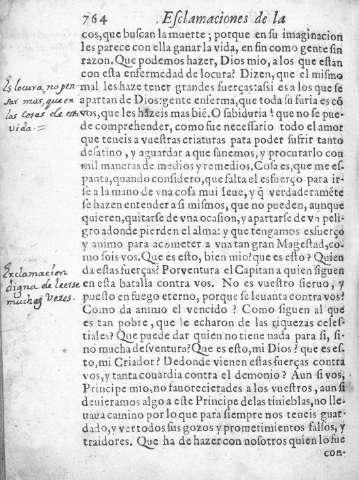 764 Esclamaciones de la
cos, que buscan la muerte; porque en su imaginacion
les parece con ella ganar la vida, en fin como gente sin
razon. Que podemos hazer, Dios mio, a los que estan
con esta enfermedad de locura? Dizen, que el mismo
mal les haze tener grandes fuerças: assi es a los que se
apartan de Dios: gente enferma, que toda su furia es cõ
vos, que les hazeis mas biẽ. O sabiduria! que no se pue-
de comprehender, como fue necessario todo el amor
que teneis a vuestras criaturas para poder sufrir tanto
desatino, y aguardar a que sanemos, y procurarlo con
mil maneras de medios y remedios. Cosa es, que me es-
panta, quando considero, que falta el esfuerço para ir-
se a la mano de vna cosa mui leue, y q̃ verdaderamẽte
se hazen entender a si mismos, que no pueden, aunque
quieren, quitarse de vna ocasion, y apartarse de vn peli-
gro adonde pierden el alma: y que tengamos esfuerço
y animo para acometer a vna tan gran Magestad, co-
mo sois vos. Que es esto, bien mio? que es esto? Quien
da estas fuerças? Por ventura el Capitan a quien siguen
en esta batalla contra vos. No es vuestro sieruo, y
puesto en fuego eterno, porque se leuanta contra vos?
Como da animo el vencido? Como siguen al que
es tan pobre, que le echaron de las riquezas celes-
tiales? Que puede dar quien no tiene nada para si, si-
no mucha desventura? Que es esto, mi Dios? que es es-
to, mi Criador? De donde vienen estas fuerças contra
vos, y tanta couardia contra el demonio? Aun si vos,
Principe mio, no fauorecierades a los vuestros, aun si
deuieramos algo a este Principe de las tinieblas, no lle-
uaua camino por lo que para siempre nos teneis guar-
dado, y ver todos sus gozos y prometimientos falsos, y
traidores. Que ha de hazer con nosotros quien lo fue
con-
Es locura, no pen
sar mas, que en
las cosas de esta
vida.=
Exclamacion
digna de leerse
muchas vezes.